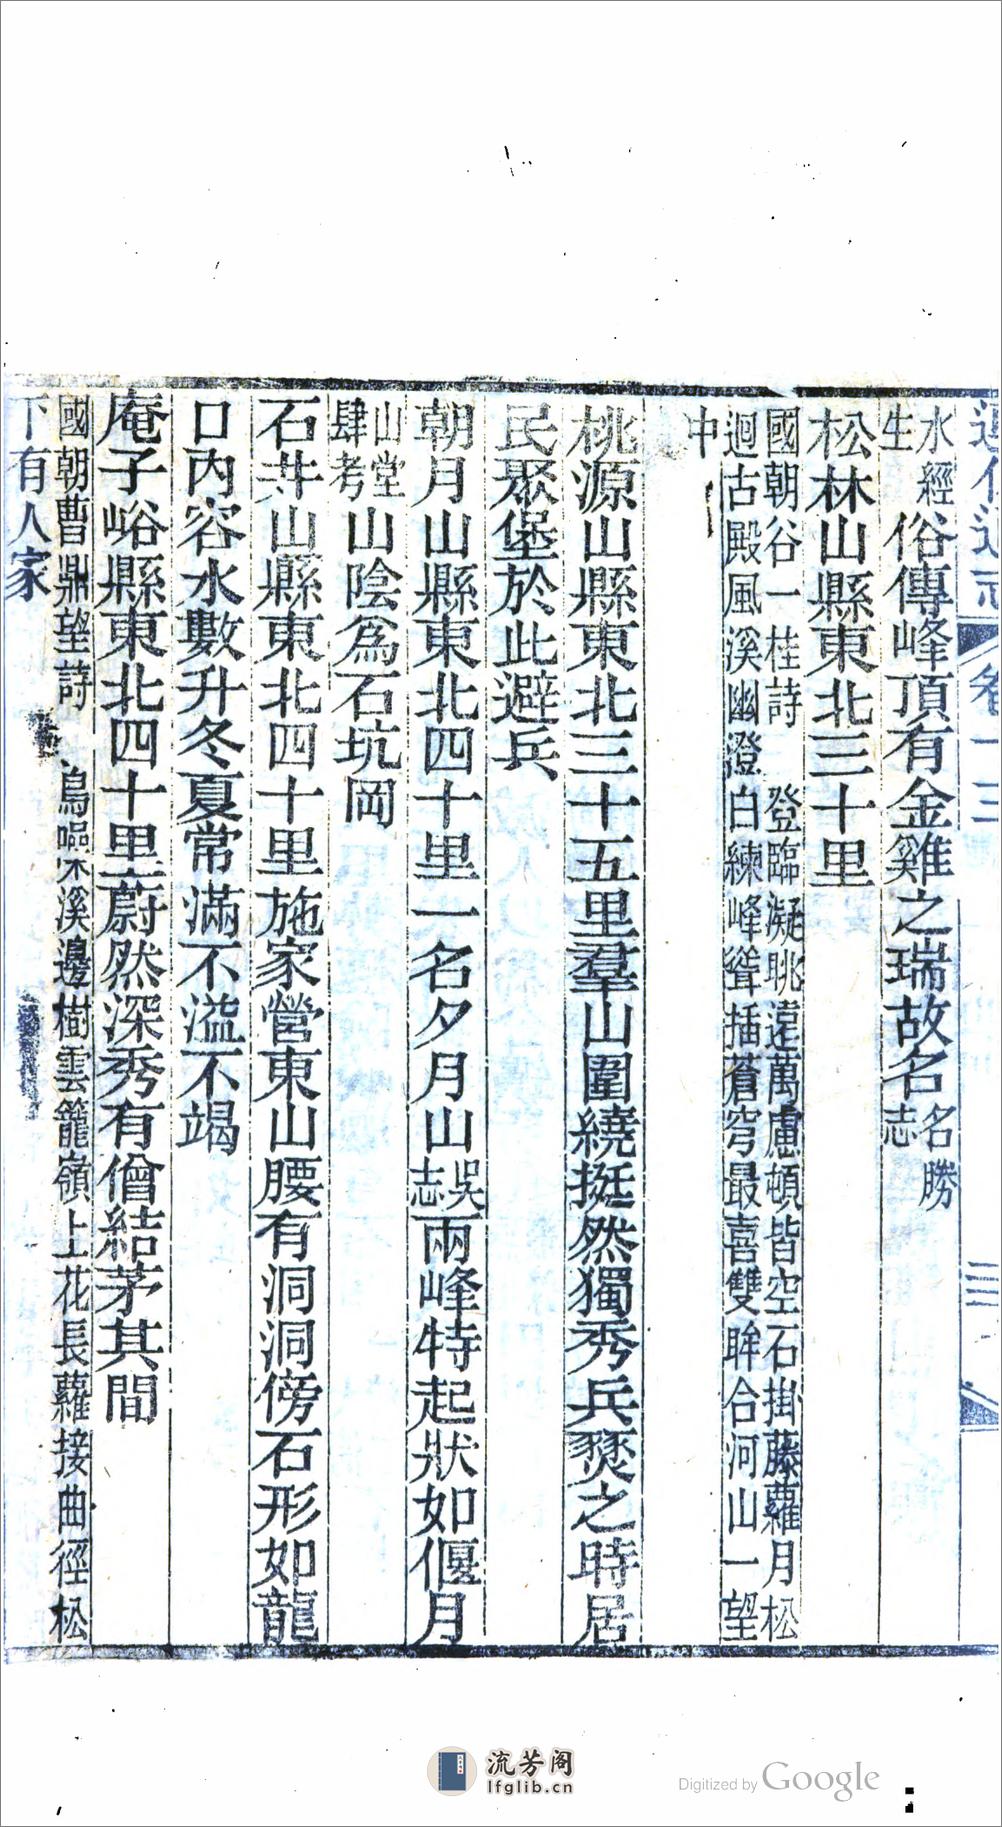 水經注俗傳峰頂有金雞之瑞故名名勝志
松林山縣東北三十里
國朝谷一桂詩 登臨凝眺遠萬慮頓皆空石掛藤蘿月松
迴古殿風溪幽澄白練峰聳插蒼穹最喜雙眸合河山一望
中
桃源山縣東北三十五里羣山圍繞挺然獨秀兵燹之時居
民聚堡於此避兵
朝月山縣東北四十里一名夕月山吳志兩峰特起狀如偃月
山堂肆考山陰爲石坑岡
石井山縣東北四十里施家營東山腰有洞洞傍石形如龍
口內容水數升冬夏常滿不溢不竭
庵子峪縣東北四十里蔚然深秀有僧結茅其間
國朝曹鼎望詩 鳥噪溪邊樹雲籠嶺上花長蘿接曲徑松
下有人家
流芳阁
lfglib.cn
Digitized by Google